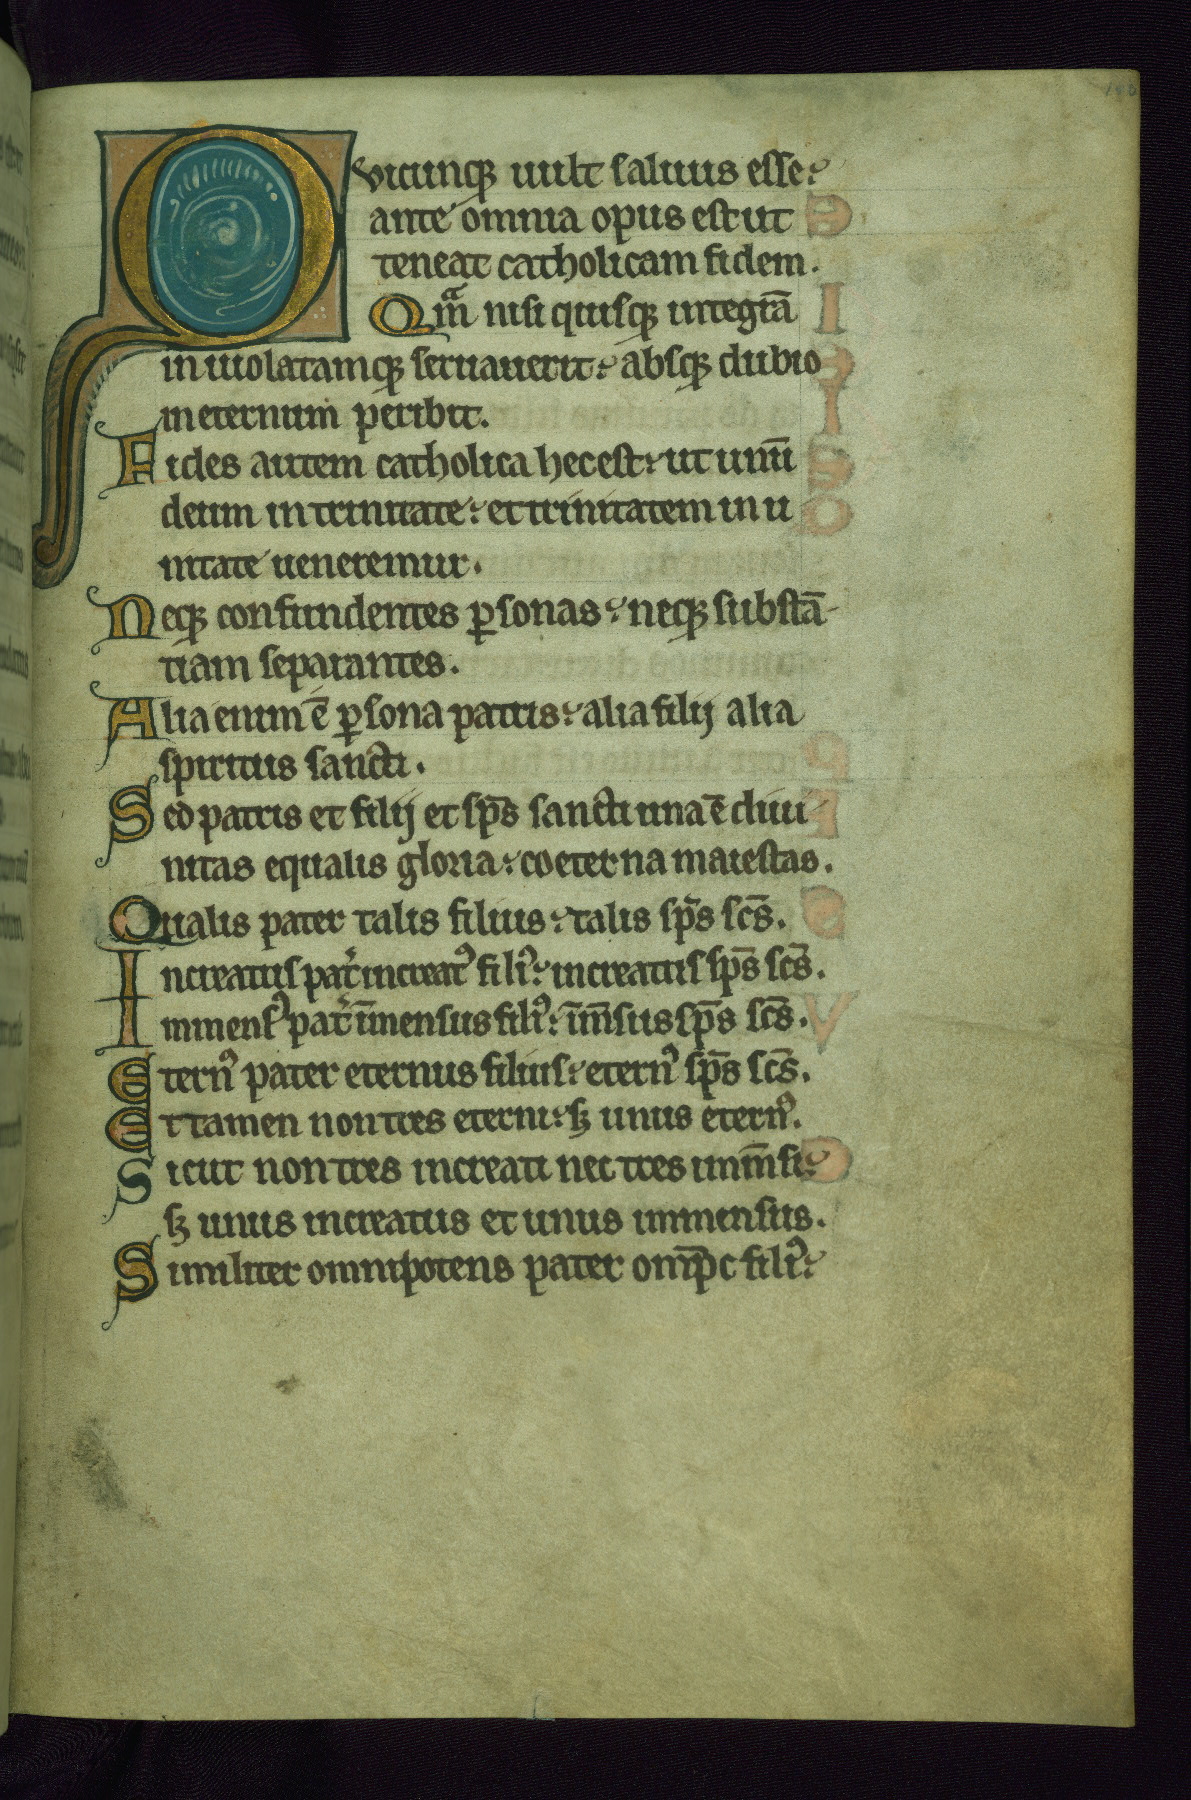 Qvicunq; uult saluus esse:
ante omnia opus est ut
teneat catholicam fidem.
Qm̄ nisi quisq; integrā
inuiolatamq; seruauerit: absq; dubio
in eternum peribit.
Fides autem catholica hec est: ut unū
deum in trinitate: et trinitatem in u
nitate ueneremur.
Neq; confundentes ꝑsonas: neq; substā-
tiam separantes.
Alia enim ē ꝑsona patris: alia filij alia
spiritus sancti.
Sed patris et filij et sp̄s sancti una ē diui
nitas equalis gloria: coeterna maiestas.
Qualis pater talis filius: talis sp̄s sc̄s.
Increatus pat͛ increatꝰ filiꝰ: increatus sp̄s sc̄s.
Immensꝰ pat͛ īmensus filiꝰ: īm̄sus sp̄s sc̄s.
Eternꝰ pater eternus filius: eternꝰ sp̄s sc̄s.
Et tamen non tres eterni: sꝫ unus eternꝰ.
Sicut non tres increati nec tres imm̄si:
sꝫ unus increatus et unus immensus.
Similiter omnipotens pater omp̄c filiꝰ: